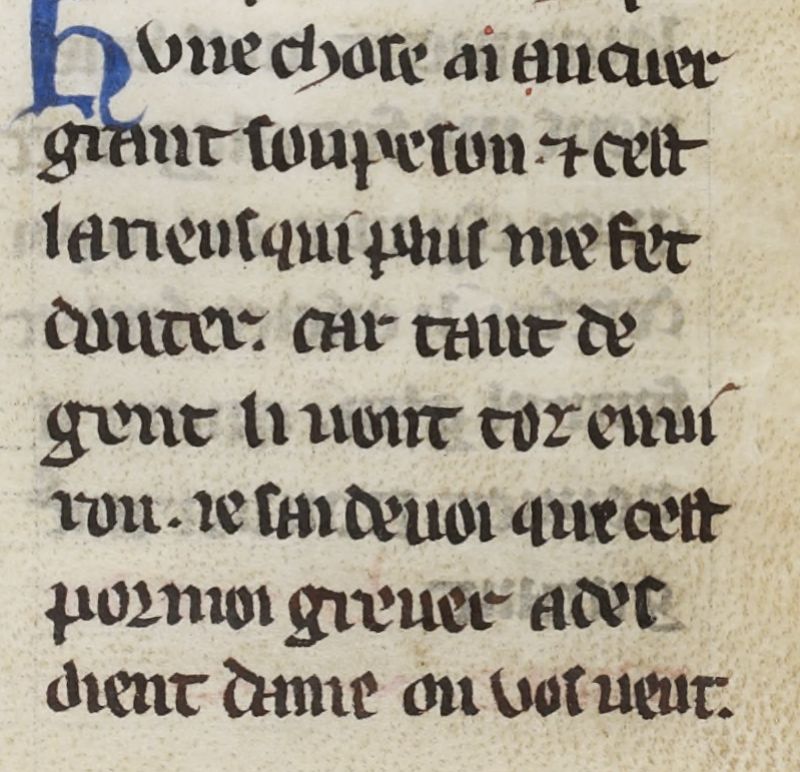 h vne chose ai au cuer
grant soupeson. ⁊ cest
la riens qui plus me fet
douter. car tant de
gent li uont tor enui
ron. ie sai de uoi que cest
por moi greuer ades
dient dame on vos ueut.